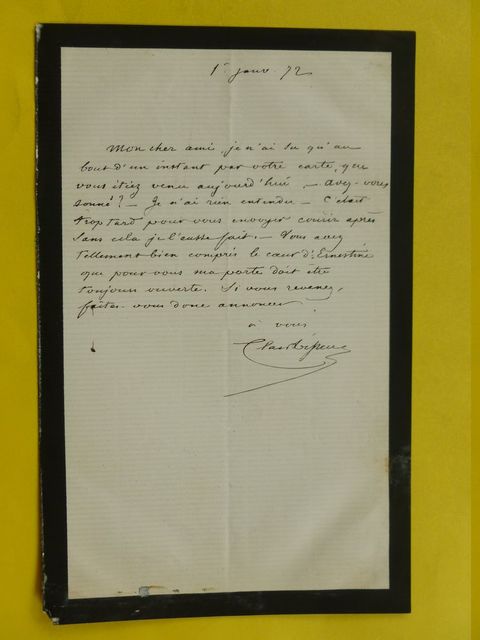 1er janv. 72
Mon cher ami, je n'ai su qu'au
bout d'un instant par votre carte, que
vous étiez venu aujourd'hui. - Avez-vous
sonné? - Je n'ai rien entendu - C'était
trop tard pour vous envoyer courir après
sans cela je l'eusse fait. - Vous avez
tellement bien compris le cœur d'Ernestine
que pour vous ma porte doit être
toujours ouverte. Si vous revenez,
faites-vous donc annoncer
à vous